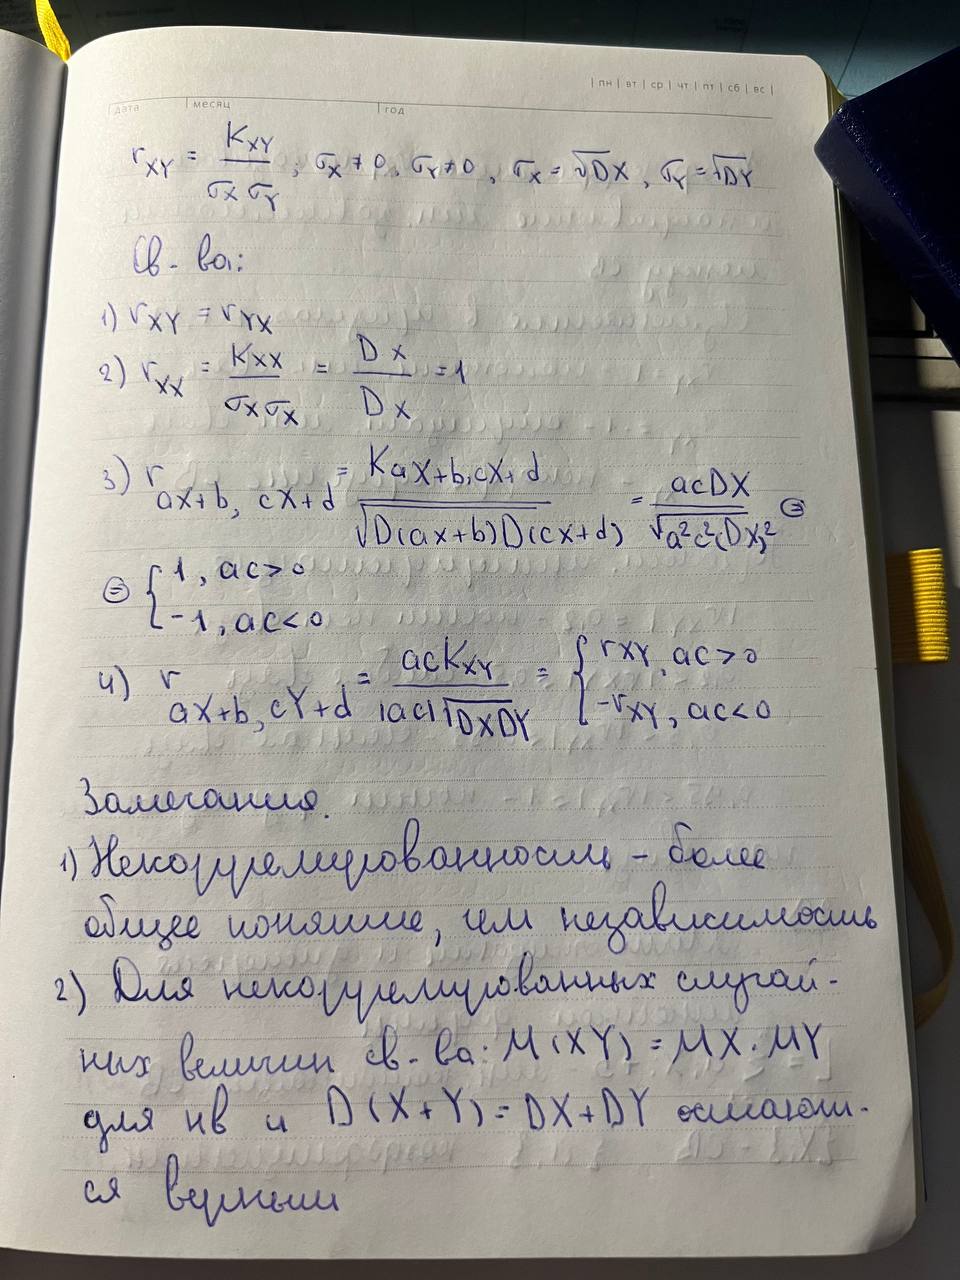 | пн | вт | ср | чт | пт | сб | вс |
дата месяц год
r_XY = K_XY / (σ_X σ_Y) ; σ_X ≠ 0, σ_Y ≠ 0, σ_X = √DX, σ_Y = √DY
Св-ва:
1) r_XY = r_YX
2) r_XX = K_XX / (σ_X σ_X) = DX / DX = 1
3) r_{aX+b, cX+d} = K_{aX+b, cX+d} / √(D(ax+b)D(cx+d)) = acDX / √(a²c²(DX)²) ⊜
⊜ { 1, ac>0
-1, ac<0
4) r_{aX+b, cY+d} = acK_XY / (|ac|√(DXDY)) = { r_XY, ac>0
-r_XY, ac<0
Замечания.
1) Некоррелированность - более
общее понятие, чем независимость
2) Для некоррелированных случай-
них величин св-ва: M(XY) = MX·MY
для нв и D(X+Y) = DX+DY остают-
ся верными